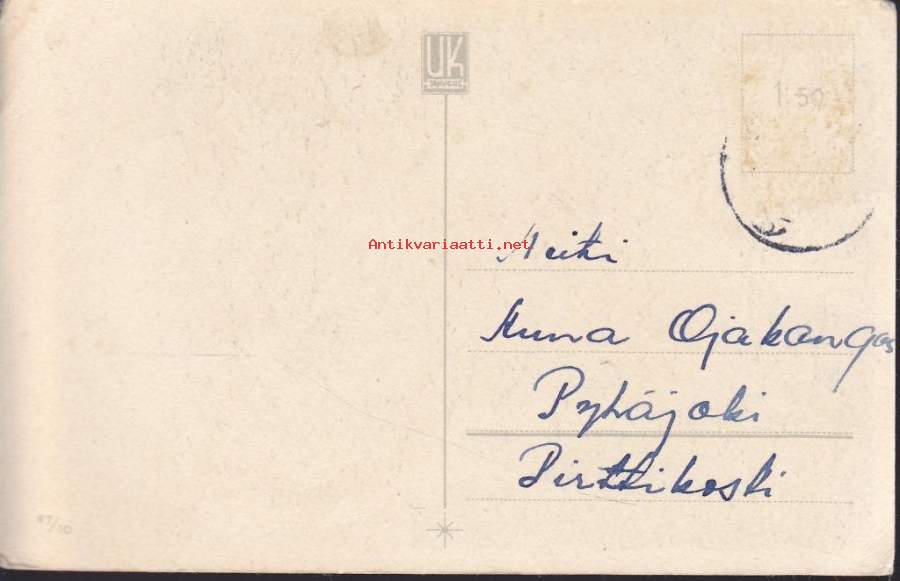 UK
1:50
Antikvariaatti.net
Neiti
Ojakangas
Pyhäjoki
Pirttikoski